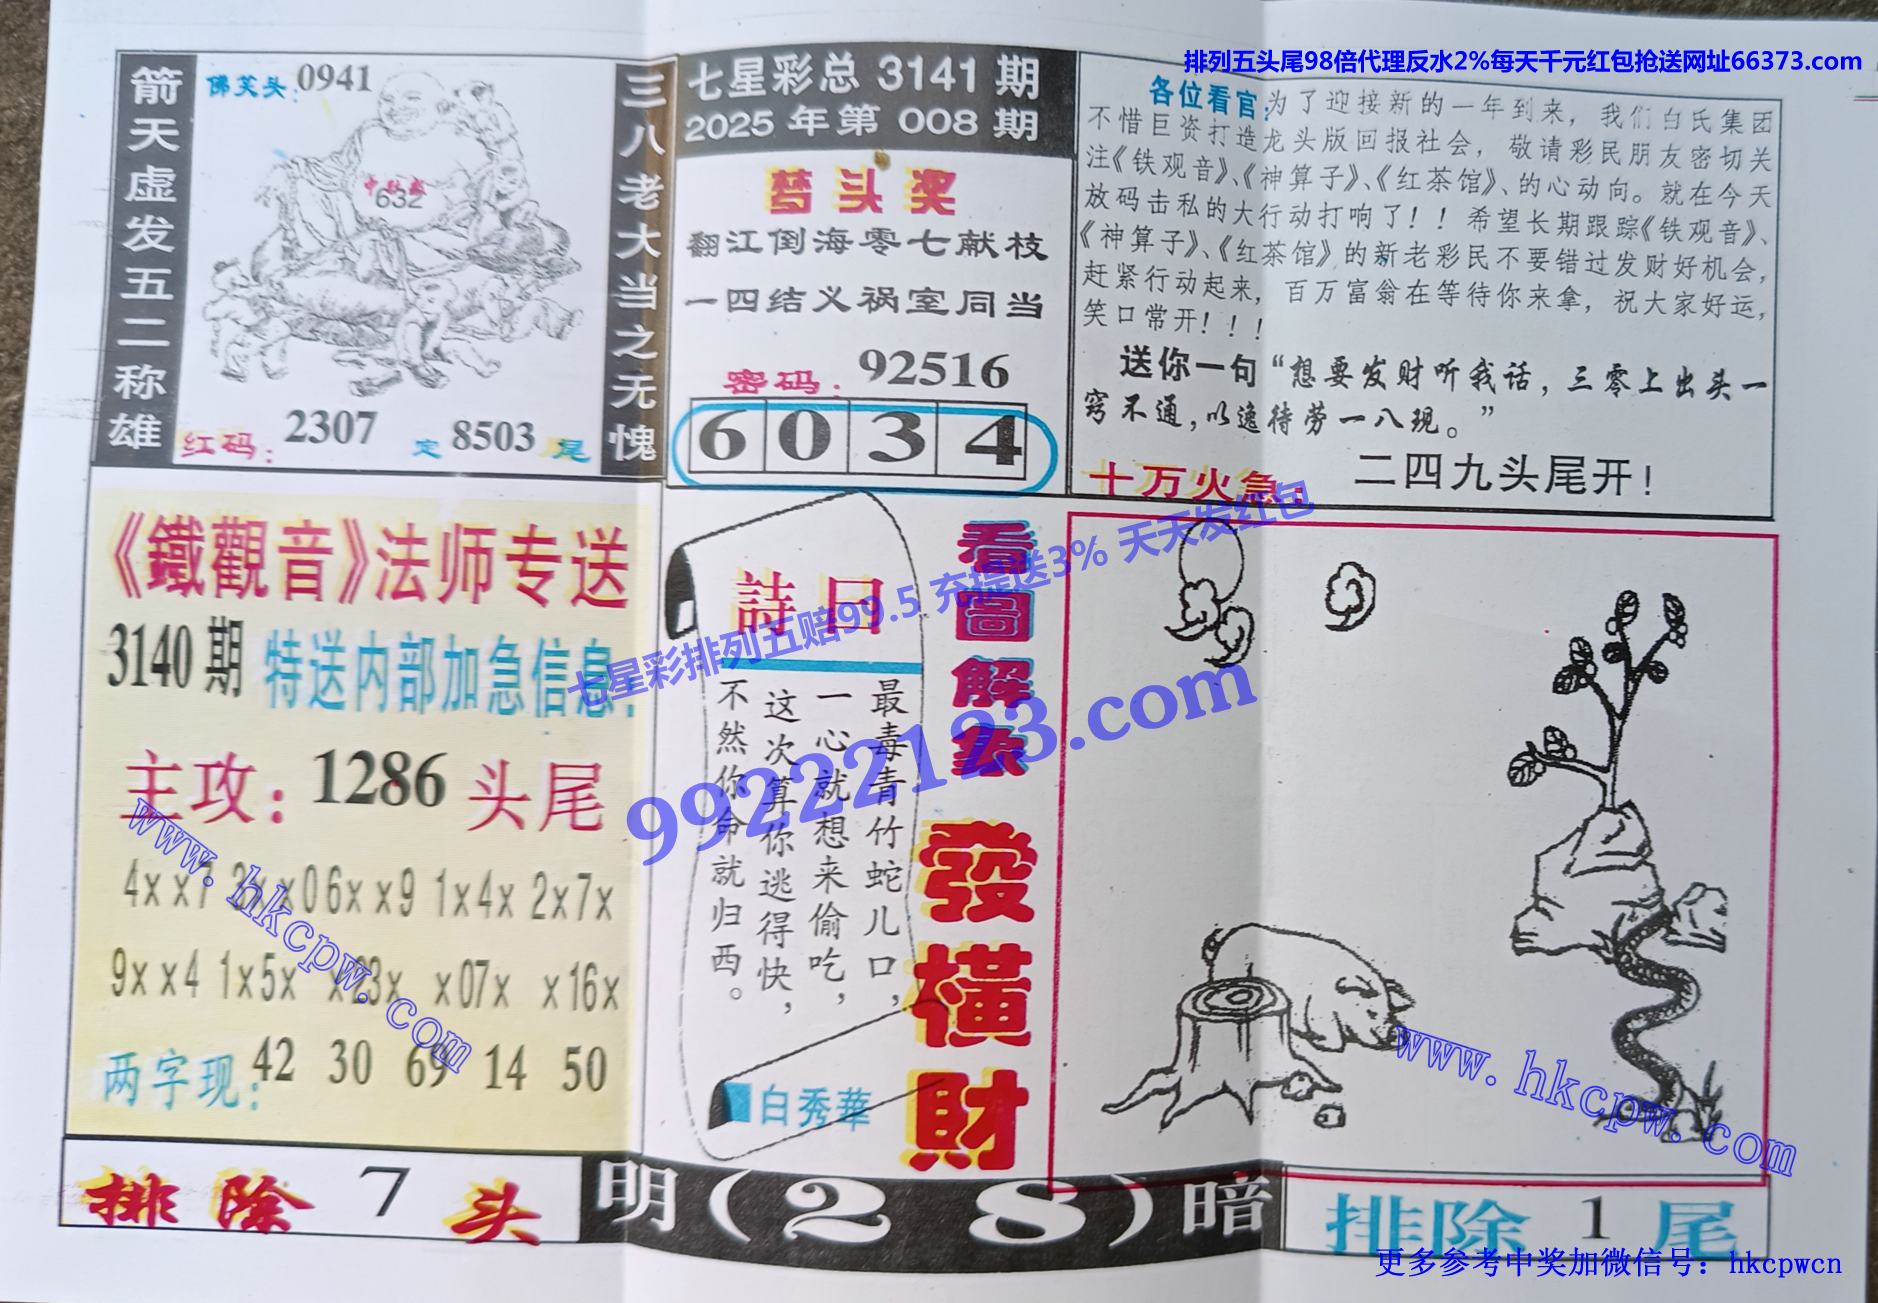 排列五头尾98倍代理反水2%每天千元红包抢送网址66373.com
箭天虚发五二称雄
佛笑头:0941
中秋盛
632
红码:2307
定8503尾
三八老大当之无愧
七星彩总3141期
2025年第008期
梦头奖
翻江倒海零七献枝
一四结义祸室同当
密码:92516
6034
各位看官:为了迎接新的一年到来，我们白氏集团
不惜巨资打造龙头版回报社会，敬请彩民朋友密切关
注《铁观音》、《神算子》、《红茶馆》、的心动向。就在今天
放码击私的大行动打响了！！希望长期跟踪《铁观音》、
《神算子》、《红茶馆》的新老彩民不要错过发财好机会，
赶紧行动起来，百万富翁在等待你来拿，祝大家好运，
笑口常开！！！
送你一句“想要发财听我话，三零上出头一
窍不通，以逸待劳一八现。”
十万火急:二四九头尾开！
《鐵觀音》法师专送
3140期 特送内部加急信息:
主攻:1286头尾
4xx7 3xx0 6xx9 1x4x 2x7x
9xx4 1x5x x23x x07x x16x
两字现:42 30 69 14 50
詩曰
最毒青竹蛇儿口，
一心就想来偷吃，
这次算你逃得快，
不然你命就归西。
白秀華
看圖解象
發橫財
七星彩排列五赔99.5 充提送3% 天天发红包
99222123.com
www.hkcpw.com
www.hkcpw.com
排除7头
明(28)暗
排除1尾
更多参考中奖加微信号：hkcpwcn